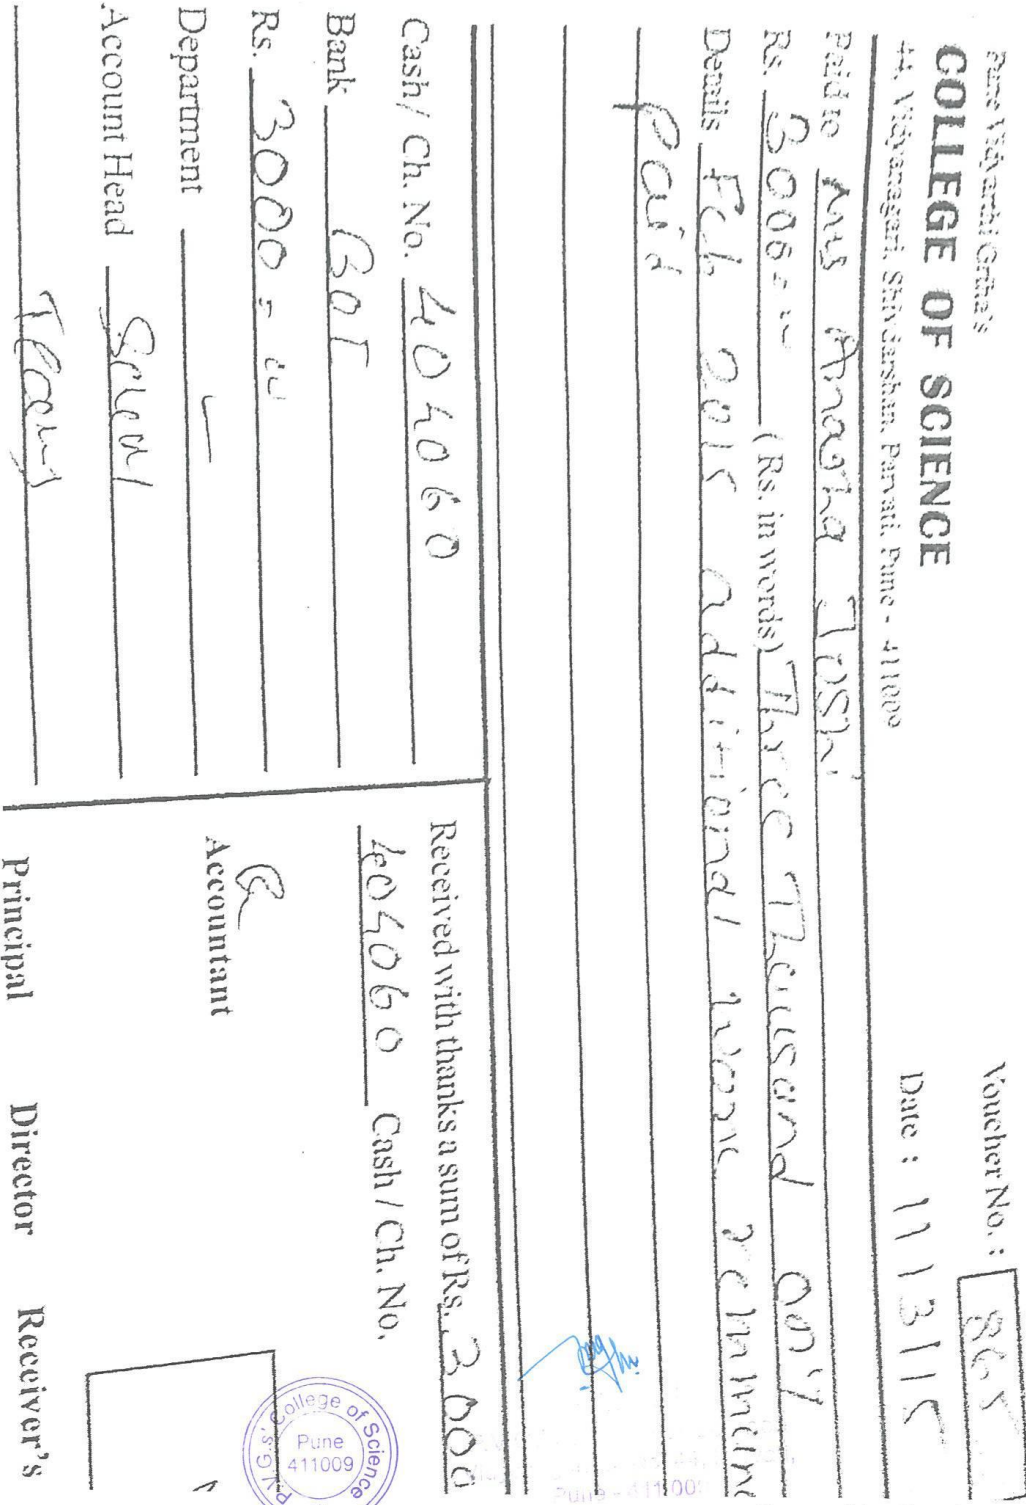 Pune Vidyarthi Griha's
COLLEGE OF SCIENCE
44, Vidyanagari, Shivdarshan, Parvati, Pune - 411009
Voucher No. : 865
Date : 11/3/15
Paid to Mrs Anagha Joshi
Rs. 3000=00 (Rs. in words) Three Thousand only
Details Feb 2015 additional work
Paid
Cash / Ch. No. 404060
Bank BOI
Rs. 3000=00
Department
Account Head
Received with thanks a sum of Rs. 3000
404060 Cash / Ch. No.
Accountant
Principal Director Receiver's
P.V.G.s' College of Science
Pune
411009